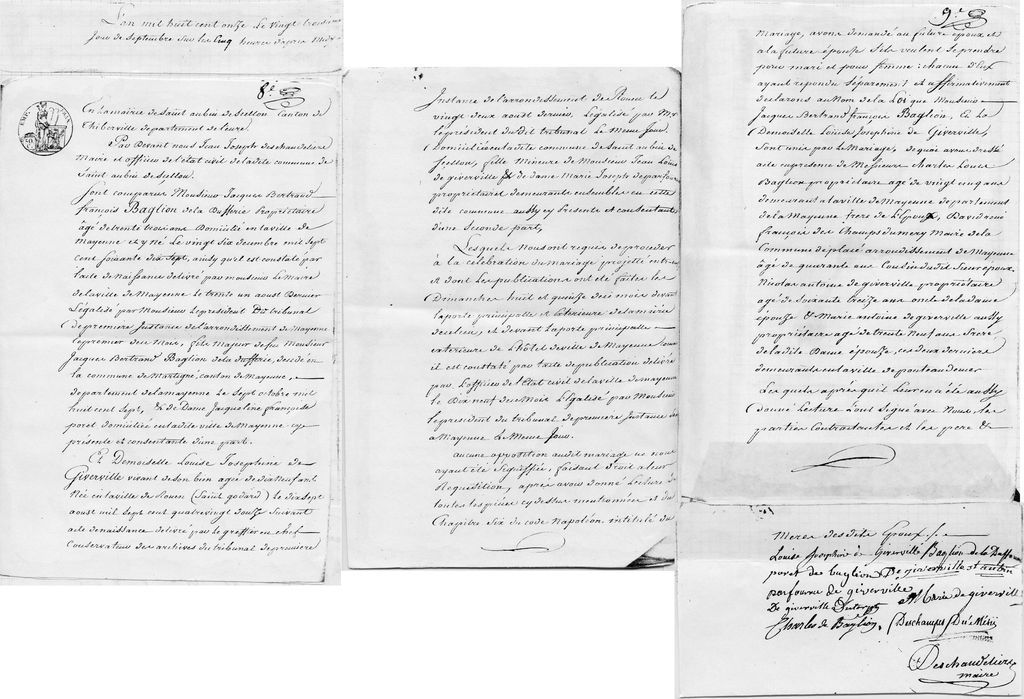 L'an mil huit cent onze le vingt troisieme
jour de septembre sur les cinq heures d'apres midy
8e
En la mairie de Saint aubin de Scellon canton de
Thiberville departement de l'eure.
Par Devant nous Jean Joseph deschaudeliere
Maire et officier de l'état civil de ladite commune de
Saint aubin de Scellon.
Sont comparus Monsieur Jacques Bertrand
françois Baglion de la Dufferie Propriétaire
âgé de trente trois ans Domicilié en la ville de
Mayenne et y né Le vingt six decembre mil sept
cent soixante dix sept, ainsy qu'il est constaté par
l'acte de Naissance delivré par monsieur Le Maire
de la ville de Mayenne le trente un aoust Dernier
Légalisé par Monsieur Le president Du tribunal
de premiere Instance de l'arrondissement de Mayenne
le premier de ce Mois, fils Majeur de feu Monsieur
Jacques Bertrand Baglion de la Dufferie, decedé en
la commune de Martigné, canton de Mayenne,
departement de la mayenne Le sept octobre mil
huit cent sept, & de Dame Jacqueline françoise
poret domiciliée en la dite ville de Mayenne icy
présente et consentante d'une part.
Et Demoiselle Louise Josephine de
Giverville vivant de son bien agée de dix Neuf ans
Née en la ville de Rouen (Saint godard) Le dix sept
aoust mil sept cent quatrevingt douze suivant
acte de naissance delivré par le greffier en chef
conservateur des archives du tribunal de premiere
Instance de l'arrondissement de Rouen le
vingt deux aoust dernier, Légalisé par Mr
le président du dit tribunal Le Meme Jour,
Domiciliée en la dite commune de Saint aubin de
Scellon, fille Mineure de Monsieur Jean Louis
de giverville & de dame Marie Joseph de parfourru
propriétaires demeurants ensembles en cette
dite commune aussy cy Présents et consentants
d'une seconde part,
Lesquels Nous ont requis de proceder
à la célébration du mariage projetté entre eux
et dont les publications ont été faites les
Dimanches huit et quinze de ce mois devant
la porte principalle et exterieure de la mairie
de ce lieu, et devant la porte principalle
exterieure de l'hôtel de ville de Mayenne comme
il est constaté par l'acte de publication delivré
par l'officier de l'Etat civil de la ville de mayenne
le Dix neuf de ce Mois Légalisé par Monsieur
le president du tribunal de premiere Instance de
Mayenne Le Meme Jour.
aucune opposition audit mariage ne nous
ayant été signiffiée, faisant Droit à leur
Requisition, après avoir donné Lecture de
toutes les pièces cy dessus mentionnées et du
Chapitre Six du code Napoléon intitulé du
9e
Mariage, avons demandé au future époux et
a la future épouse s'ils veulent se prendre
pour mari et pour femme : chacun d'Eux
ayant repondu séparement et affirmativement
declarons au Nom de la Loi que Monsieur
Jacques Bertrand françois Baglion, Et La
Demoiselle Louise Josephine de Giverville,
Sont unis par Le Mariage, de quoi avons dressé
acte en presence de Messieurs charles Louis
Baglion propriétaire agé de vingt cinq ans
demeurant a la ville de Mayenne departement
de la Mayenne frere de L'Epoux, David rené
françois des Champs dumery Maire de la
Commune de placé arrondissement de Mayenne
âgé de quarante ans Cousin du dit Sieur epoux,
Nicolas antoine de giverville propriétaire
agé de Soixante treize ans oncle de la dame
épouze & Marie antoine de giverville aussy
propriétaire agé de trente Neuf ans frere
de la dite Dame épouze, ces deux derniers
demeurants en la ville de ponteaudemer
Lesquels après qu'il Leur en a été aussy
donné Lecture L'ont Signé avec Nous, les
parties Contractantes et les pere &
Meres desdits Epoux /.
Louise Josephine de Giverville Baglion de la Dufferie
poret de baglion De giverville
parfourru de giverville
De giverville A Marie de giverville
Charles de Baglion, Deschamps Du Méry
Deschaudeliere
maire